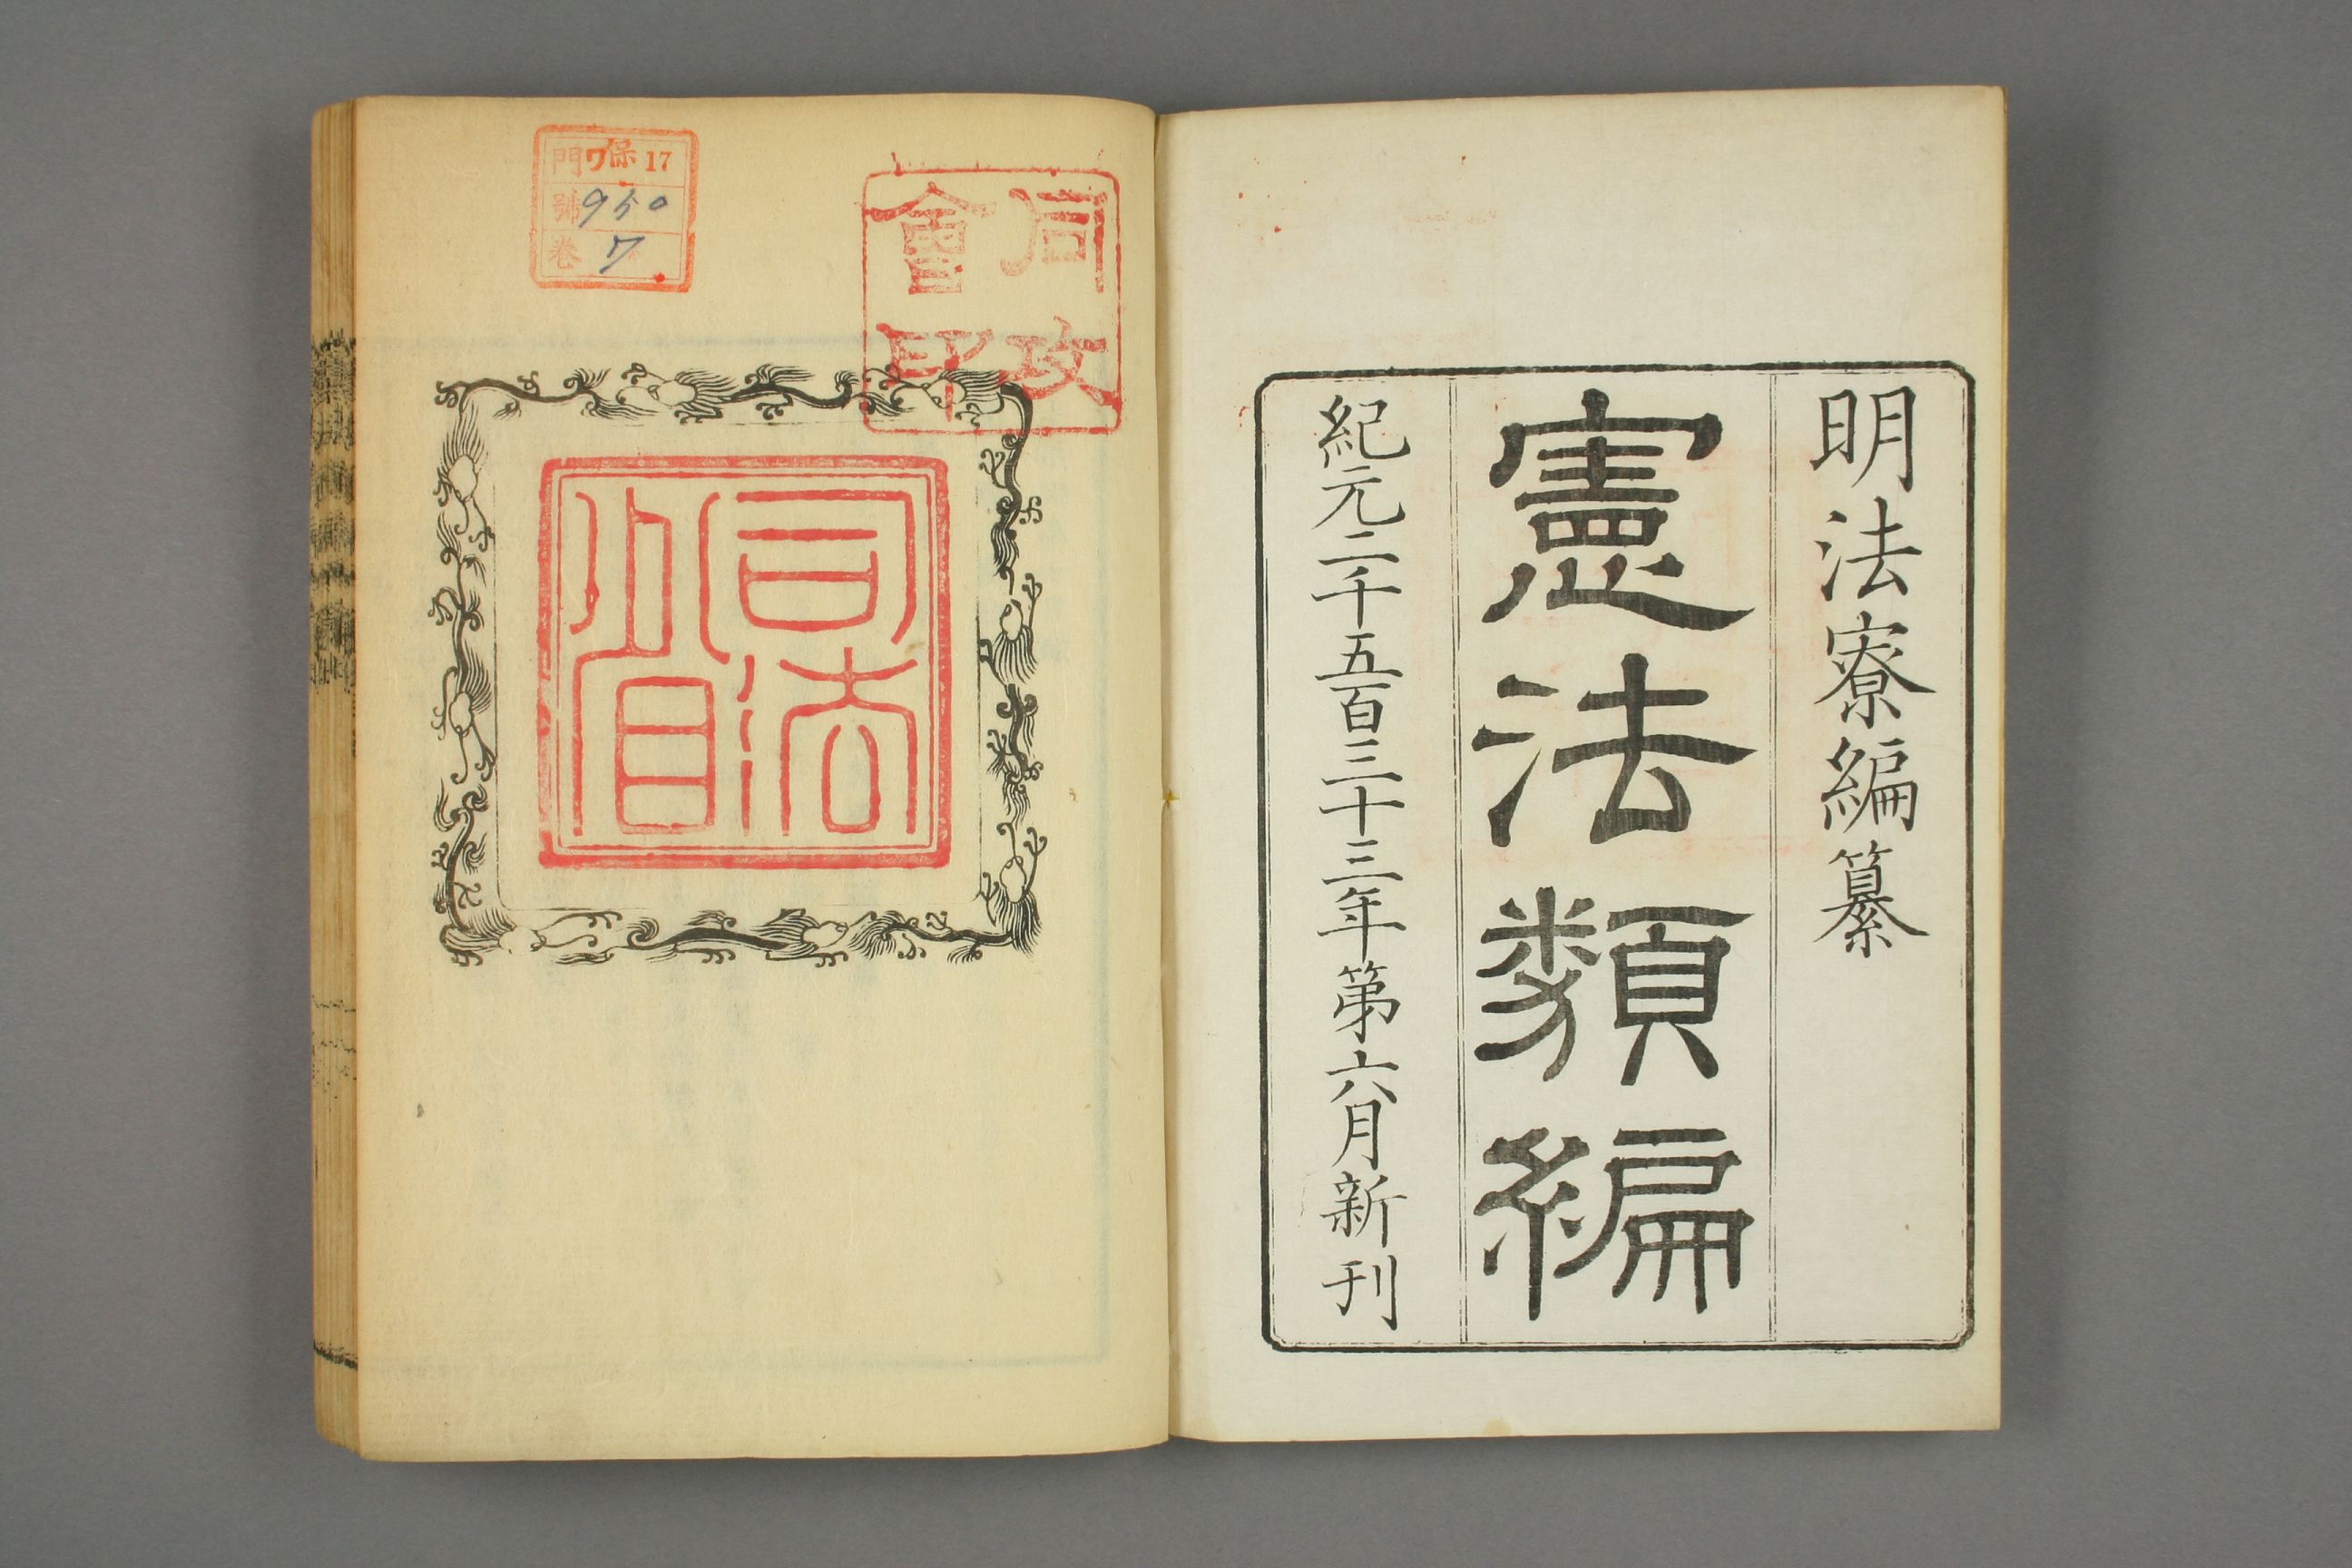 明法寮編纂
憲法類編
紀元二千五百三十三年第六月新刊
同攻
會印
司法
省印
門ワ保17
號950
卷7